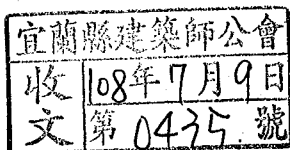 宜蘭縣建築師公會
收文
108年7月9日
第0435號